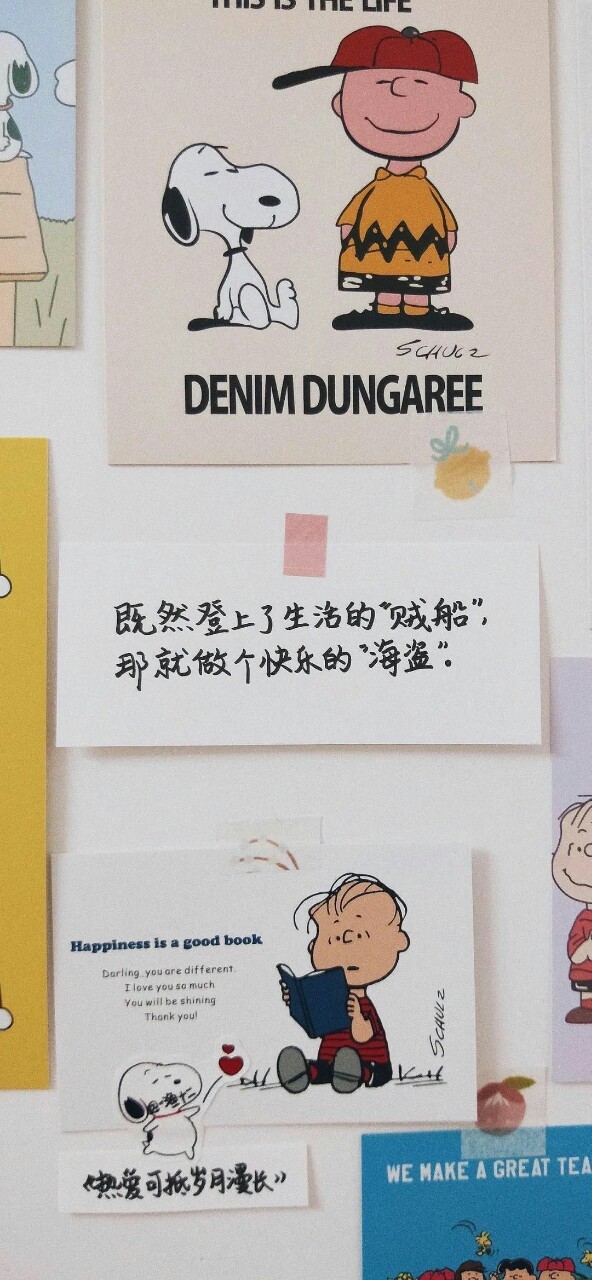 THIS IS THE LIFE
SCHULZ
DENIM DUNGAREE
既然登上了生活的“贼船”,
那就做个快乐的“海盗”。
Happiness is a good book
Darling..you are different.
I love you so much
You will be shining
Thank you!
SCHULZ
《热爱可抵岁月漫长》
WE MAKE A GREAT TEA